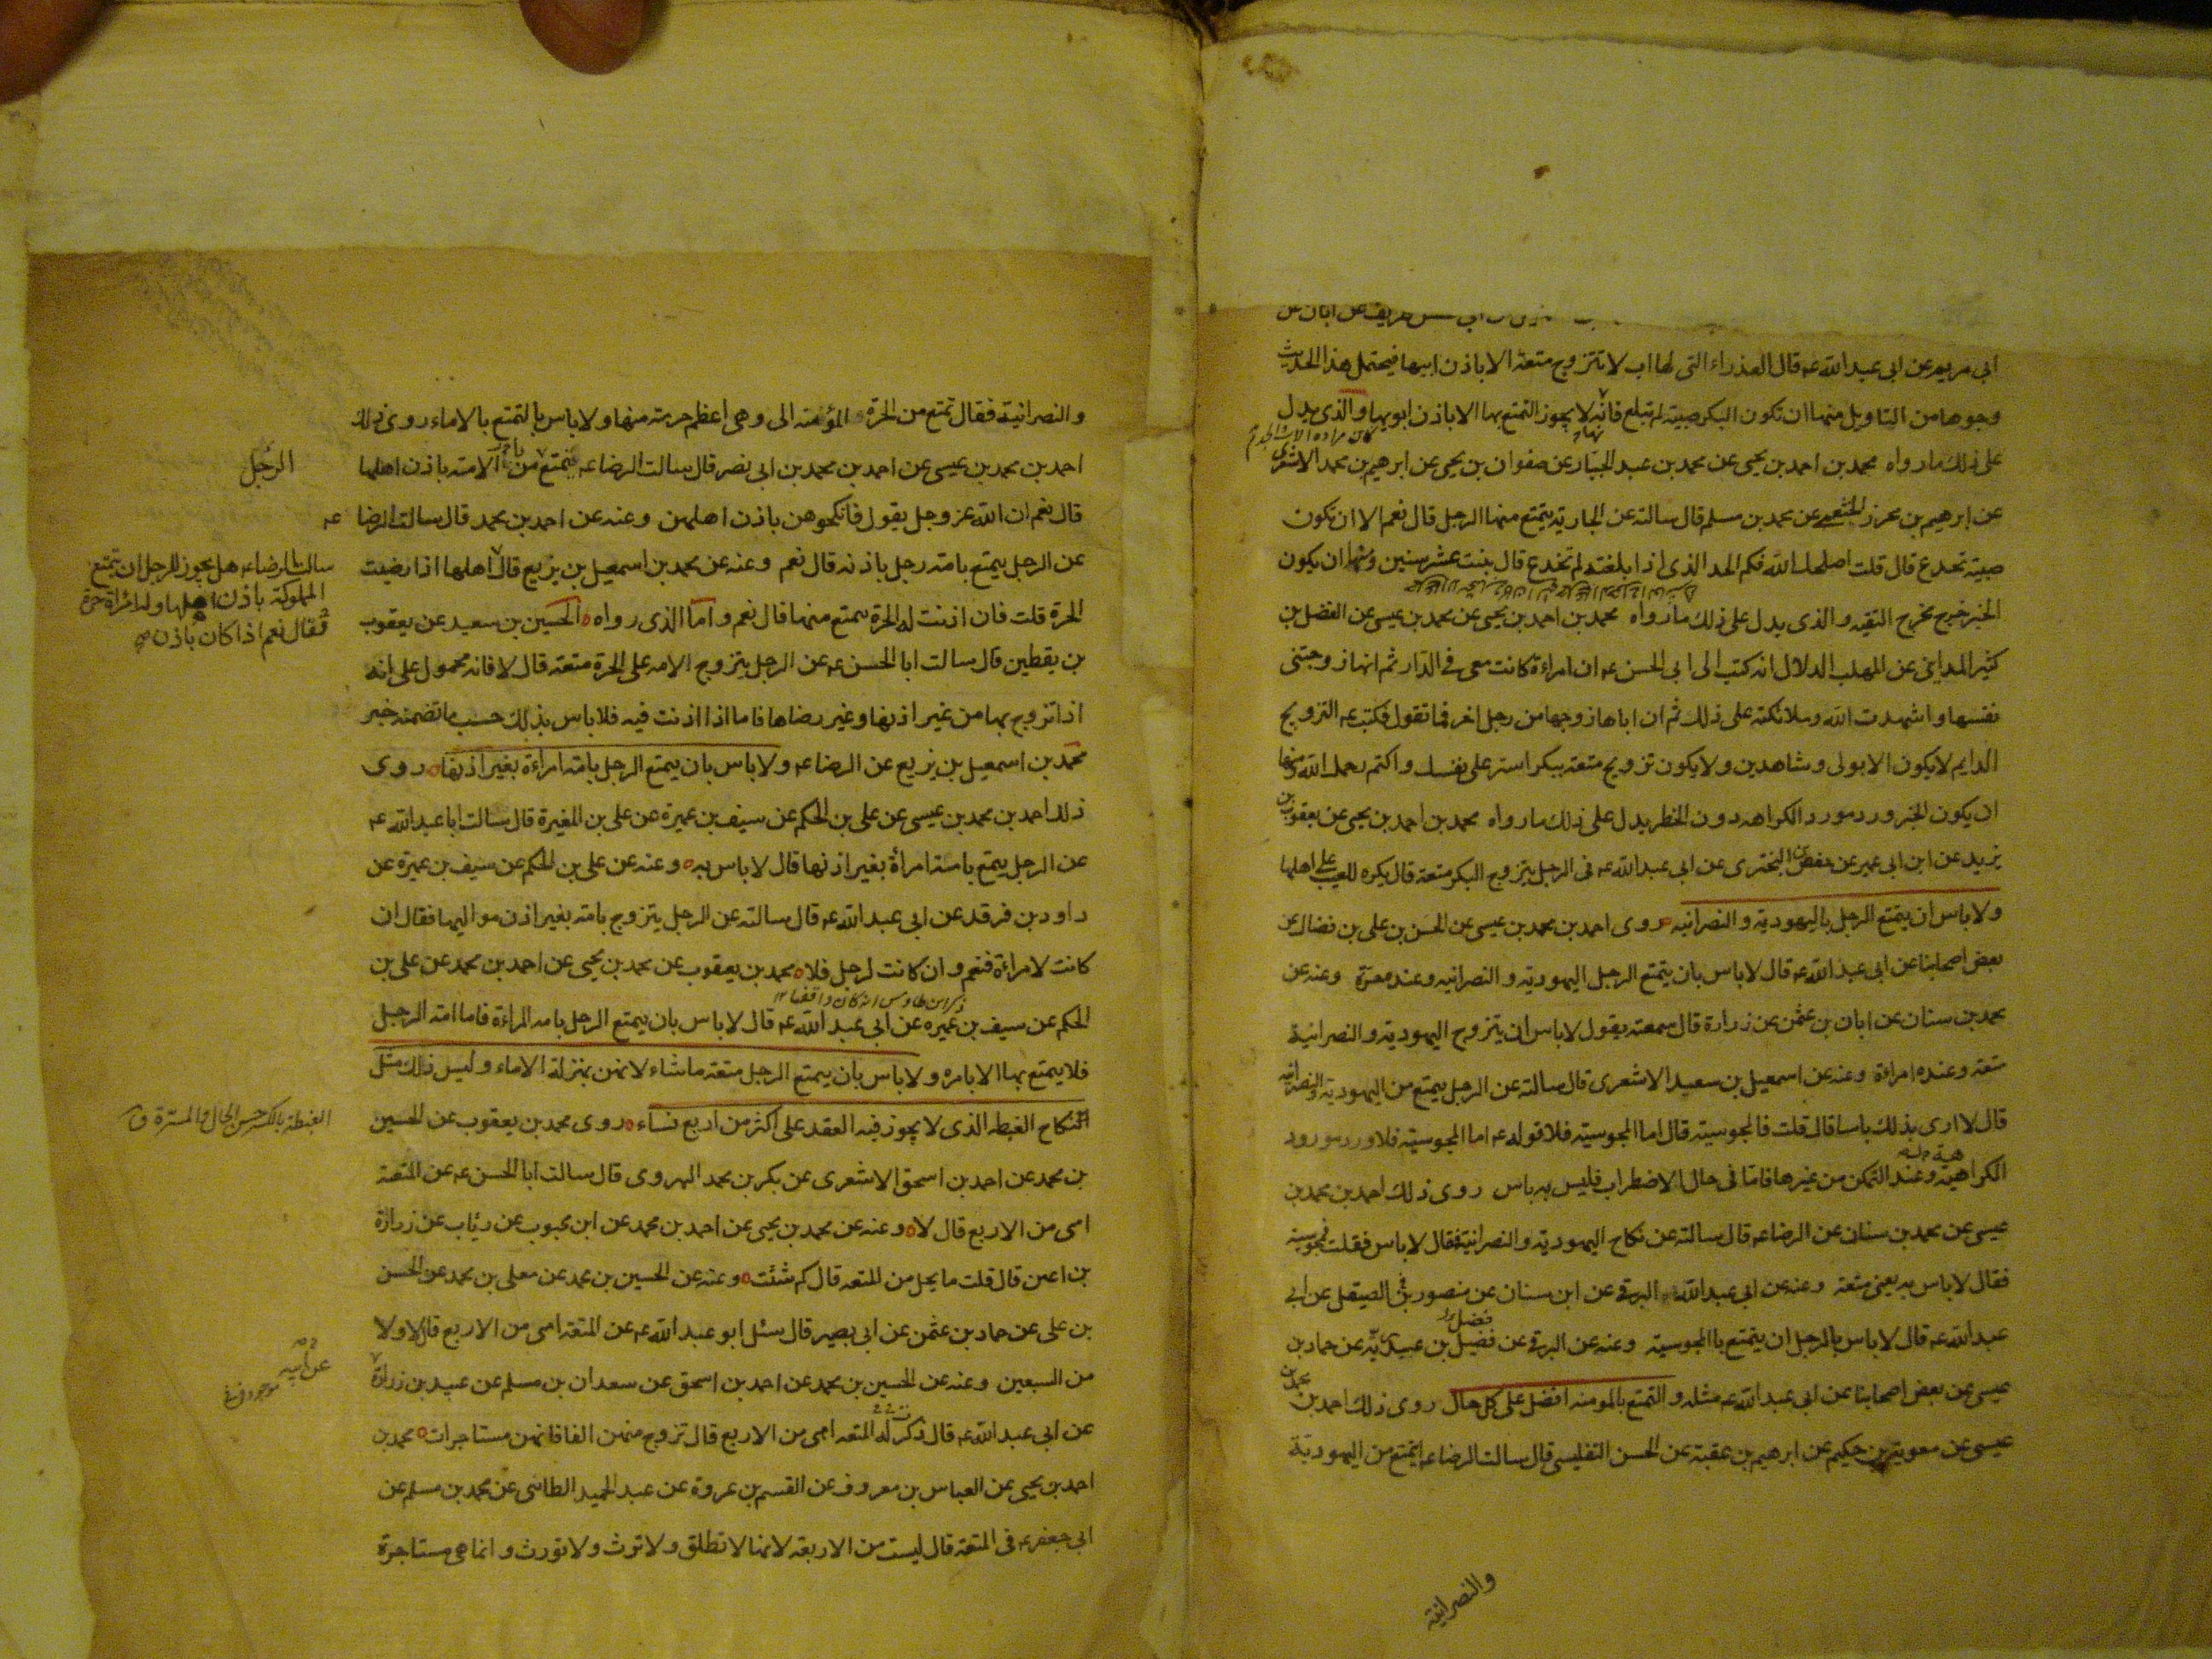 ابى مريم عن ابى عبد الله عه قال العذراء التى لها اب لا تتزوج متعة الا باذن ابيها فيحتمل هذا الحديث
وجوها من التاويل منها ان تكون البكر صبية لم تبلغ فانه لا يجوز التمتع بها الا باذن ابويها والذى يدل
على ذلك ما رواه محمد بن احمد بن يحيى عن محمد بن عبد الجبار عن صفوان بن يحيى عن ابرهيم بن محمد الاشعرى
عن ابرهيم بن محرز الخثعمى عن محمد بن مسلم قال سالته عن الجارية يتمتع منها الرجل قال نعم الا ان تكون
صبية تخدع قال قلت اصلحك الله فكم الحد الذى اذا بلغته لم تخدع قال بنت عشر سنين ومنها ان يكون
الخبر خرج مخرج التقيه والذى يدل على ذلك ما رواه محمد بن احمد بن يحيى عن محمد بن عيسى عن الفضل بن
كثير المدايني عن المهلب الدلال انه كتب الى ابى الحسن عه ان امراءة كانت معى فى الدار ثم انها زوجتنى
نفسها واشهدت الله وملائكته على ذلك ثم ان اباها زوجها من رجل اخر فما تقول فكتب عه التزويج
الدايم لا يكون الا بولى وشاهدين ولا يكون تزويج متعة ببكر استر على نفسك واكتم رحمك الله ومنها
ان يكون الخبر ورد مورد الكراهه دون الخطر يدل على ذلك ما رواه محمد بن احمد بن يحيى عن يعقوب بن
يزيد عن ابن ابى عمير عن حفص بن البخترى عن ابى عبد الله عه فى الرجل يتزوج البكر متعة قال يكره للعيب على اهلها
ولا باس ان يتمتع الرجل باليهودية والنصرانيه روى احمد بن محمد بن عيسى عن الحسن بن على بن فضال عن
بعض اصحابنا عن ابى عبد الله عه قال لا باس بان يتمتع الرجل اليهودية والنصرانيه وعنده حرة وعنه عن
محمد بن سنان عن ابان بن عثمن عن زرارة قال سمعته يقول لا باس ان يتزوج اليهودية والنصرانية
متعة وعنده امراءة وعنه عن اسمعيل بن سعيد الاشعرى قال سالته عن الرجل يتمتع من اليهودية والنصرانيه
قال لا ارى بذلك باسا قال قلت فالمجوسية قال اما المجوسية فلا قوله عه اما المجوسية فلا ورد مورود
الكراهية وعند التمكن من غيرها فاما فى حال الاضطراب فليس به باس روى ذلك احمد بن محمد بن
عيسى عن محمد بن سنان عن الرضا عه قال سالته عن نكاح اليهودية والنصرانية فقال لا باس فقلت فمجوسية
فقال لا باس به يعنى متعة وعنه عن ابى عبد الله البرقى عن ابن سنان عن منصور الصيقل عن ابى
عبد الله عه قال لا باس بالرجل ان يتمتع بالمجوسية وعنه عن البرقى عن فضيل بن عبد ربه عن حماد بن
عيسى عن بعض اصحابنا عن ابى عبد الله عه مثله والتمتع بالمومنه افضل على كل حال روى ذلك احمد بن محمد بن
عيسى عن معوية بن حكيم عن ابرهيم بن عقبة عن الحسن التفليسى قال سالت الرضا عه ايتمتع من اليهودية
والنصرانية
والنصرانية فقال تمتع من الحرة المؤمنة الى وهى اعظم حرمة منها ولا باس بالتمتع بالاماء روى ذلك
احمد بن محمد بن عيسى عن احمد بن محمد بن ابى نصر قال سالت الرضا عه يتمتع من الامة باذن اهلها
قال نعم ان الله عز وجل يقول فانكحوهن باذن اهلهن وعنه عن احمد بن محمد قال سالت الرضا عه
عن الرجل يتمتع بامة رجل باذنه قال نعم وعنه عن محمد بن اسمعيل بن بزيع قال اهلها اذا رضيت
الحرة قلت فان اذنت له الحرة يتمتع منها قال نعم واما الذى رواه الحسين بن سعيد عن يعقوب
بن يقطين قال سالت ابا الحسن عه عن الرجل يتزوج الامه على الحرة متعة قال لا فانه محمول على انه
اذا تزوج بها من غير اذنها وغير رضاها فاما اذا اذنت فيه فلا باس بذلك حسب ما تضمنه خبر
محمد بن اسمعيل بن بزيع عن الرضا عه ولا باس بان يتمتع الرجل بامة امراءة بغير اذنها روى
ذلك احمد بن محمد بن عيسى عن على بن الحكم عن سيف بن عميرة عن على بن المغيرة قال سالت ابا عبد الله عه
عن الرجل يتمتع بامة امرأة بغير اذنها قال لا باس به وعنه عن على بن الحكم عن سيف بن عميرة عن
داود بن فرقد عن ابى عبد الله عه قال سالته عن الرجل يتزوج بامة بغير اذن مواليها فقال ان
كانت لامراءة فنعم وان كانت لرجل فلا محمد بن يعقوب عن محمد بن يحيى عن احمد بن محمد عن على بن
ذكر ابن طاوس انه كان واقفيا ١٢
الحكم عن سيف بن عميره عن ابى عبد الله عه قال لا باس بان يتمتع الرجل بامه المراءة فاما امة الرجل
فلا يتمتع بها الا بامره ولا باس بان يتمتع الرجل متعة ما شاء لانهن بمنزلة الاماء وليس ذلك مثل
النكاح الغبطه الذى لا يجوز فيه العقد على اكثر من اربع نساء روى محمد بن يعقوب عن الحسين
بن محمد عن احمد بن اسحق الاشعرى عن بكر بن محمد الهروى قال سالت ابا الحسن عه عن المتعة
امى من الاربع قال لا وعنه عن محمد بن يحيى عن احمد بن محمد عن ابن محبوب عن رئاب عن زرارة
بن اعين قال قلت ما يحل من المتعه قال كم شئت وعنه عن الحسين بن محمد عن معلى بن محمد عن الحسن
بن على عن حماد بن عثمن عن ابى بصير قال سئل ابو عبد الله عه عن المتعة امى من الاربع قال لا ولا
من السبعين وعنه عن الحسين بن محمد عن احمد بن اسحق عن سعدان بن مسلم عن عبيد بن زرارة
عن ابى عبد الله عه قال ذكر له المتعه امى من الاربع قال تزوج منهن الفا فانهن مستاجرات محمد بن
احمد بن يحيى عن العباس بن معروف عن القسم بن عروة عن عبد الحميد الطائى عن محمد بن مسلم عن
ابى جعفر عه فى المتعة قال ليست من الاربعه لانها لا تطلق ولا ترث ولا تورث وانما هى مستاجرة
الرجل
سالت الرضا عه هل يجوز للرجل ان يتمتع
المملوكة باذن اهلها وله امراة حرة
فقال نعم اذا كان باذن
الغبطة بالكسر حسن الحال والمسرة ق
عن ابيه